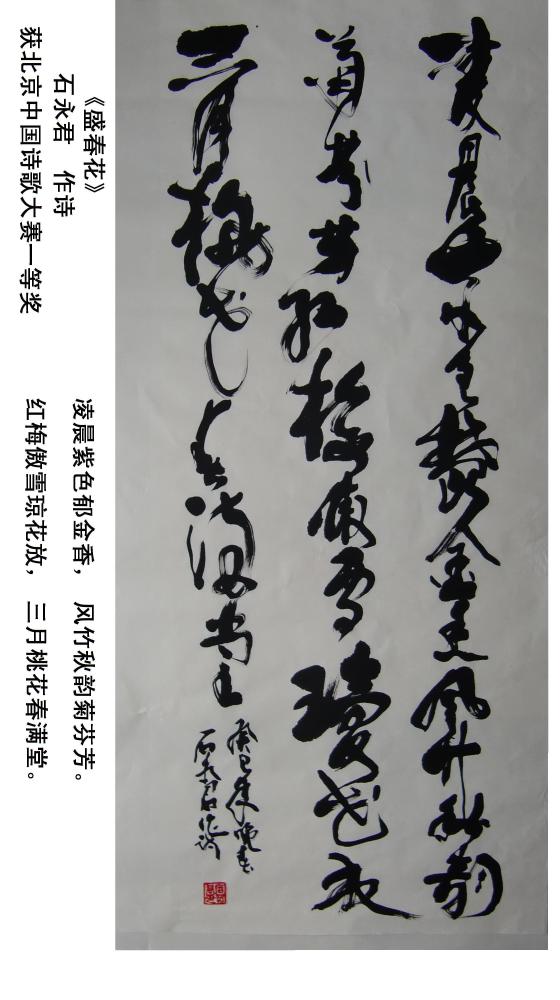 凌晨紫色鬱金香風竹秋韵
菊芬芳红梅傲雪瓊花放
三月桃花春满堂
癸巳年
石永君作诗
《盛春花》
石永君 作诗
获北京中国诗歌大赛一等奖
凌晨紫色郁金香， 风竹秋韵菊芬芳。
红梅傲雪琼花放， 三月桃花春满堂。